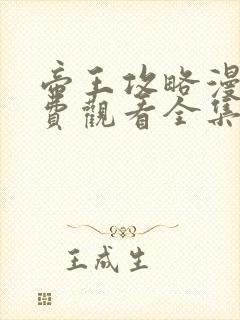 帝王攻略漫
費觀看全集
王成生